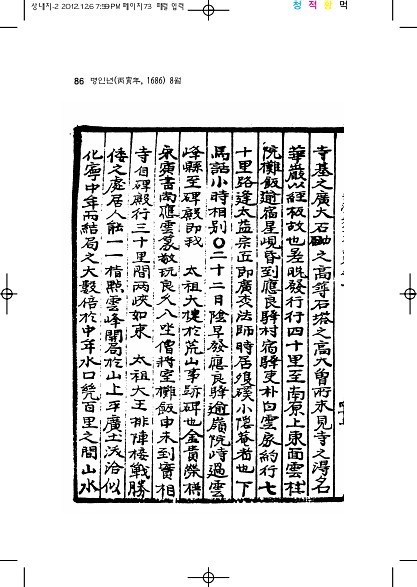 상내지-2 2012.12.6 7:59 PM 페이지73 제일 입력
청 적 황 먹
86 병인년(丙寅年, 1686) 8월
寺基之廣大石砌之高等石塔之高大曾所未見寺之得名
華嚴以經板故也 發行行四十里至南原上東面雲柱
院攤飯逾宿星峴昏到應良驛村宿驛吏朴白雲家約行七
十里路逢太益宗正即廣 法師時居須 小隱菴者也下
馬話小時相別○二十二日陰早發應良驛逾嶺院峙過雲
峰縣至碑殿即我 太祖大捷於荒山事跡碑也金貴榮撰
宋寅書南應雲篆敬玩良久入坐僧將室攤飯申末到實相
寺自碑殿行三十里間兩峽如束 太祖大王排陣接戰勝
倭之處居人能一一指點雲峰開局於山上平廣土沃洽似
化寧中年兩結局之大數倍於中年水口 百里之間山水